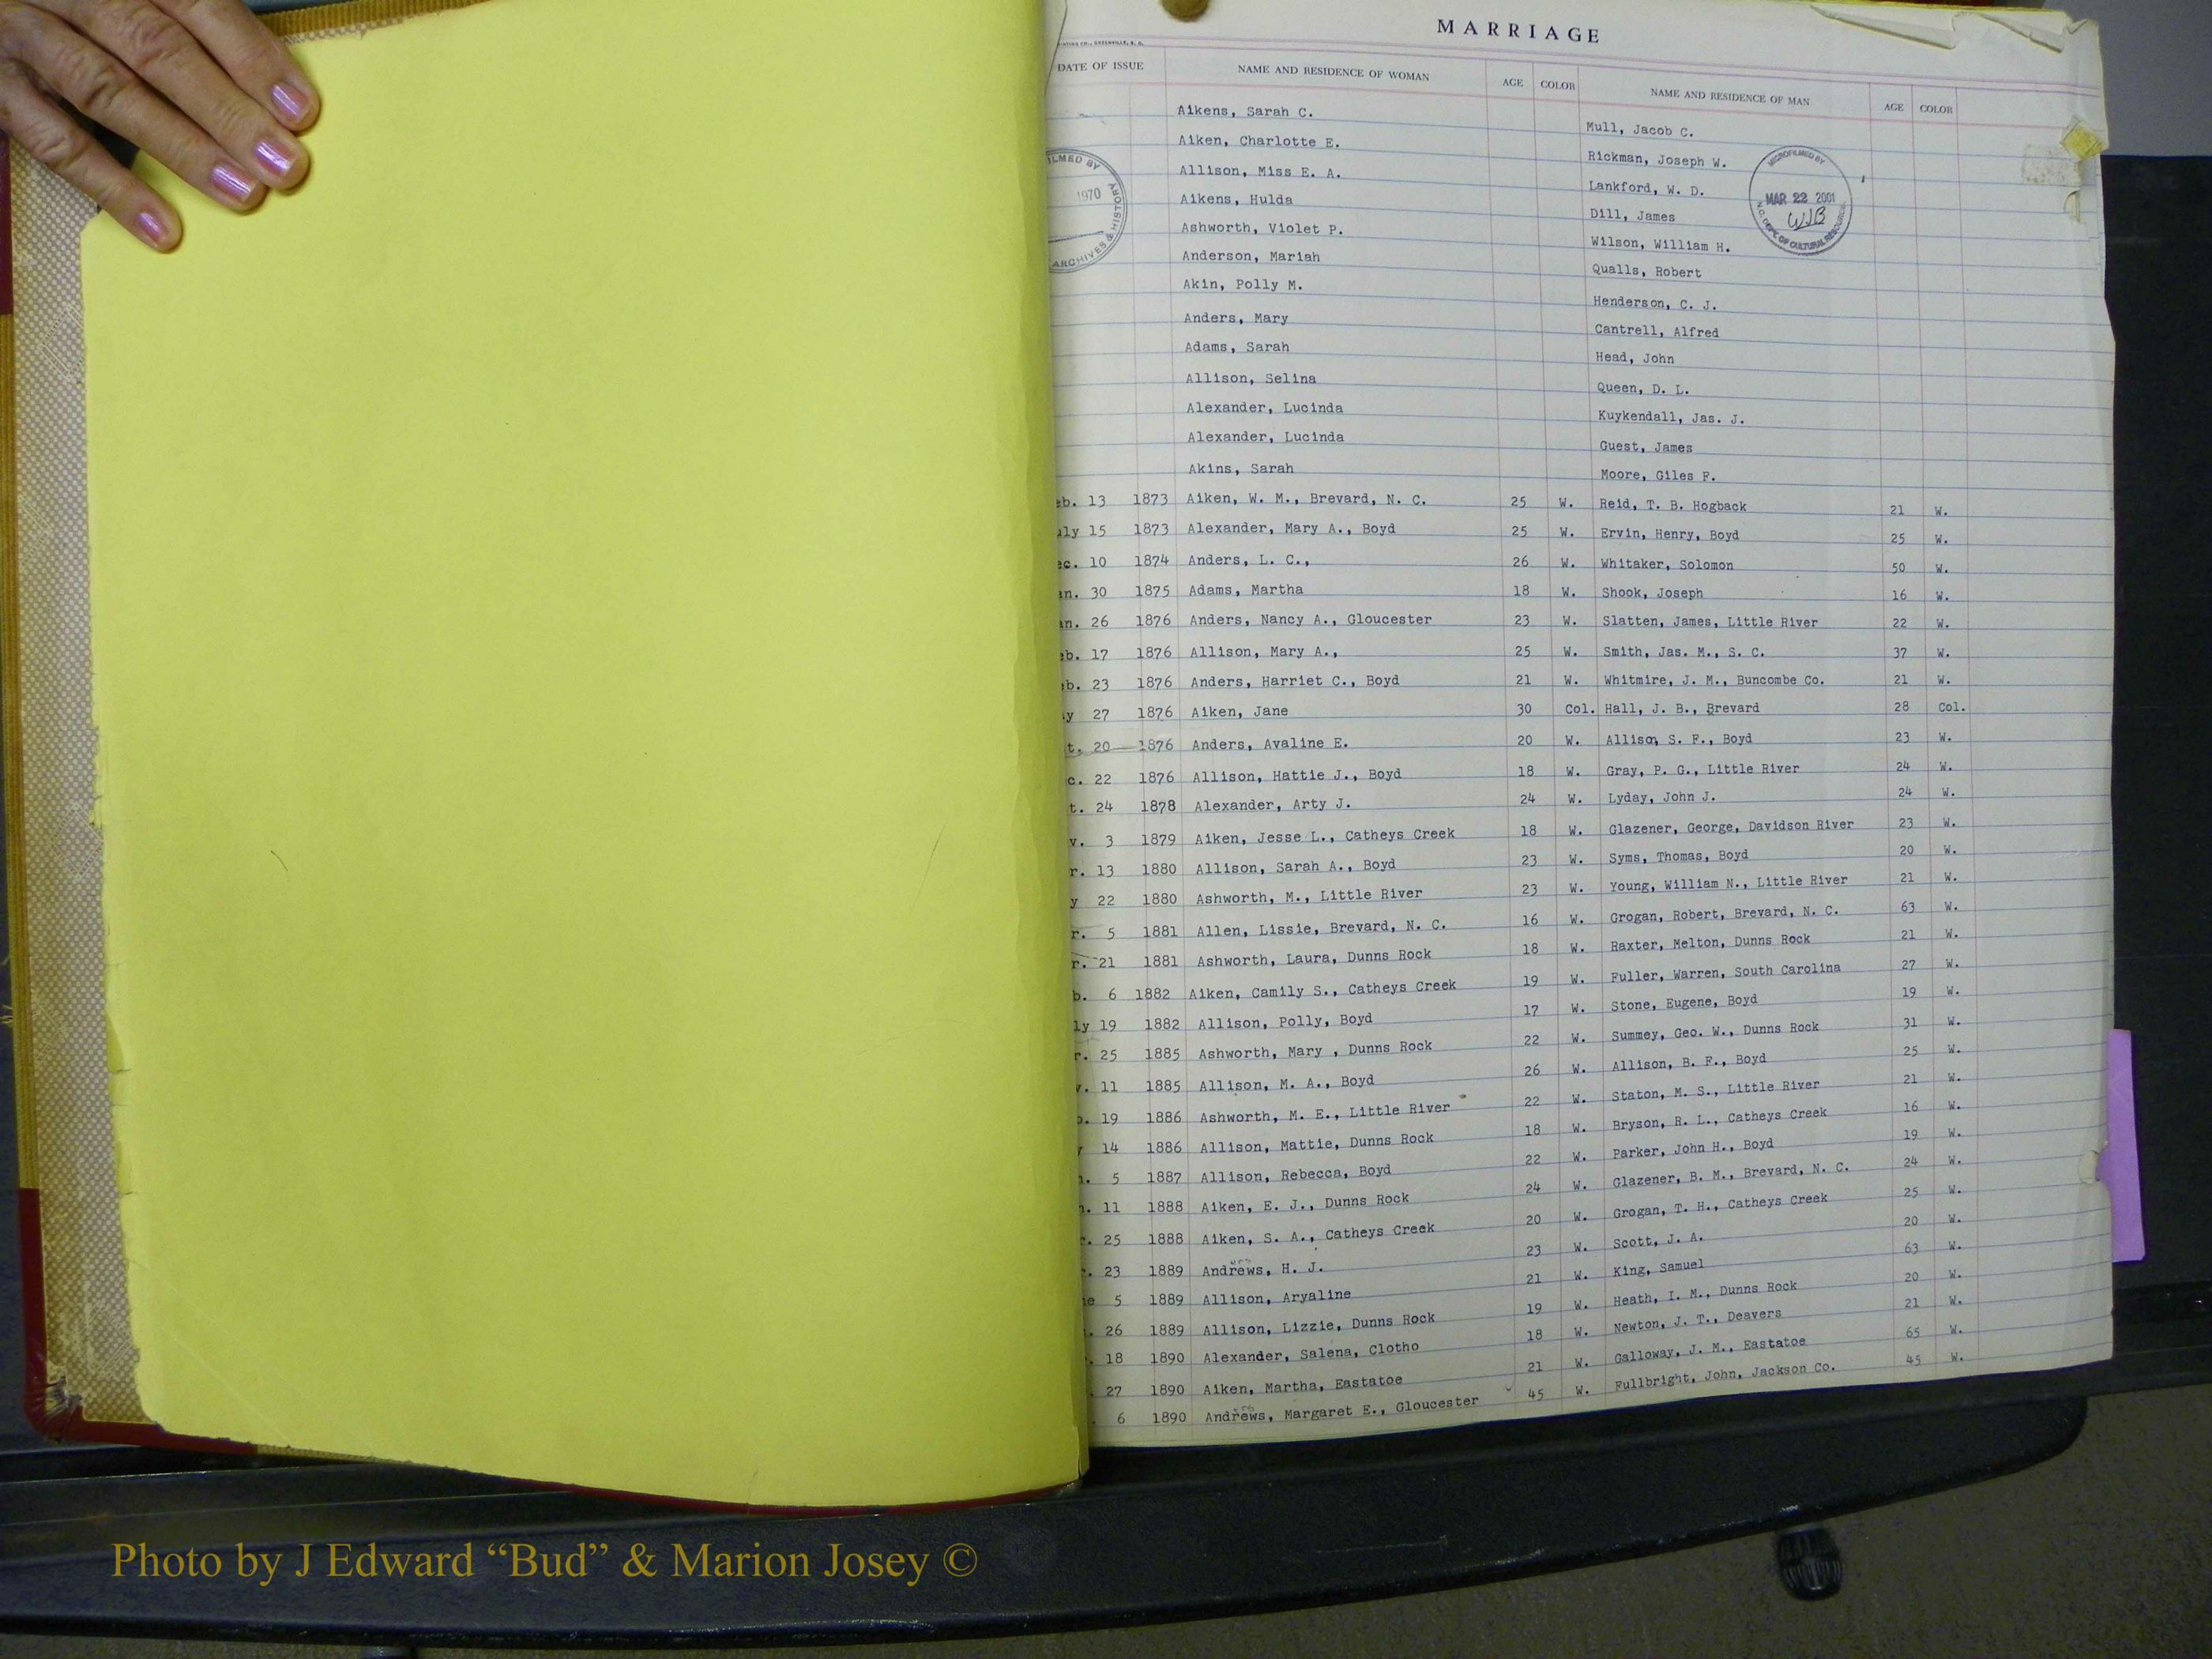 MARRIAGE
DATE OF ISSUE NAME AND RESIDENCE OF WOMAN AGE COLOR NAME AND RESIDENCE OF MAN AGE COLOR
Aikens, Sarah C. Mull, Jacob C.
Aiken, Charlotte E. Rickman, Joseph W.
Allison, Miss E. A. Lankford, W. D.
Aikens, Hulda Dill, James
Ashworth, Violet P. Wilson, William H.
Anderson, Mariah Qualls, Robert
Akin, Polly M. Henderson, C. J.
Anders, Mary Cantrell, Alfred
Adams, Sarah Head, John
Allison, Selina Queen, D. L.
Alexander, Lucinda Kuykendall, Jas. J.
Alexander, Lucinda Guest, James
Akins, Sarah Moore, Giles F.
eb. 13 1873 Aiken, W. M., Brevard, N. C. 25 W. Reid, T. B. Hogback 21 W.
uly 15 1873 Alexander, Mary A., Boyd 25 W. Ervin, Henry, Boyd 25 W.
ec. 10 1874 Anders, L. C., 26 W. Whitaker, Solomon 50 W.
an. 30 1875 Adams, Martha 18 W. Shook, Joseph 16 W.
an. 26 1876 Anders, Nancy A., Gloucester 23 W. Slatten, James, Little River 22 W.
eb. 17 1876 Allison, Mary A., 25 W. Smith, Jas. M., S. C. 37 W.
eb. 23 1876 Anders, Harriet C., Boyd 21 W. Whitmire, J. M., Buncombe Co. 21 W.
y 27 1876 Aiken, Jane 30 Col. Hall, J. B., Brevard 28 Col.
t. 20 1876 Anders, Avaline E. 20 W. Allison, S. F., Boyd 23 W.
c. 22 1876 Allison, Hattie J., Boyd 18 W. Gray, P. G., Little River 24 W.
t. 24 1878 Alexander, Arty J. 24 W. Lyday, John J. 24 W.
v. 3 1879 Aiken, Jesse L., Catheys Creek 18 W. Glazener, George, Davidson River 23 W.
r. 13 1880 Allison, Sarah A., Boyd 23 W. Syms, Thomas, Boyd 20 W.
y 22 1880 Ashworth, M., Little River 23 W. Young, William N., Little River 21 W.
r. 5 1881 Allen, Lissie, Brevard, N. C. 16 W. Grogan, Robert, Brevard, N. C. 63 W.
r. 21 1881 Ashworth, Laura, Dunns Rock 18 W. Raxter, Melton, Dunns Rock 21 W.
b. 6 1882 Aiken, Camily S., Catheys Creek 19 W. Fuller, Warren, South Carolina 27 W.
ly 19 1882 Allison, Polly, Boyd 17 W. Stone, Eugene, Boyd 19 W.
r. 25 1885 Ashworth, Mary , Dunns Rock 22 W. Summey, Geo. W., Dunns Rock 31 W.
v. 11 1885 Allison, M. A., Boyd 26 W. Allison, B. F., Boyd 25 W.
b. 19 1886 Ashworth, M. E., Little River 22 W. Staton, M. S., Little River 21 W.
y 14 1886 Allison, Mattie, Dunns Rock 18 W. Bryson, R. L., Catheys Creek 16 W.
n. 5 1887 Allison, Rebecca, Boyd 22 W. Parker, John H., Boyd 19 W.
n. 11 1888 Aiken, E. J., Dunns Rock 24 W. Glazener, B. M., Brevard, N. C. 24 W.
r. 25 1888 Aiken, S. A., Catheys Creek 20 W. Grogan, T. H., Catheys Creek 25 W.
. 23 1889 Andrews, H. J. 23 W. Scott, J. A. 20 W.
e 5 1889 Allison, Aryaline 21 W. King, Samuel 63 W.
. 26 1889 Allison, Lizzie, Dunns Rock 19 W. Heath, I. M., Dunns Rock 20 W.
. 18 1890 Alexander, Salena, Clotho 18 W. Newton, J. T., Deavers 21 W.
. 27 1890 Aiken, Martha, Eastatoe 21 W. Galloway, J. M., Eastatoe 65 W.
. 6 1890 Andrews, Margaret E., Gloucester 45 W. Fullbright, John, Jackson Co. 45 W.
ILMED BY
1970
ARCHIVES & HISTORY
MICROFILMED BY
MAR 22 2001
WJB
N.C. DEPT. OF CULTURAL RESOURCES
Photo by J Edward “Bud” & Marion Josey ©